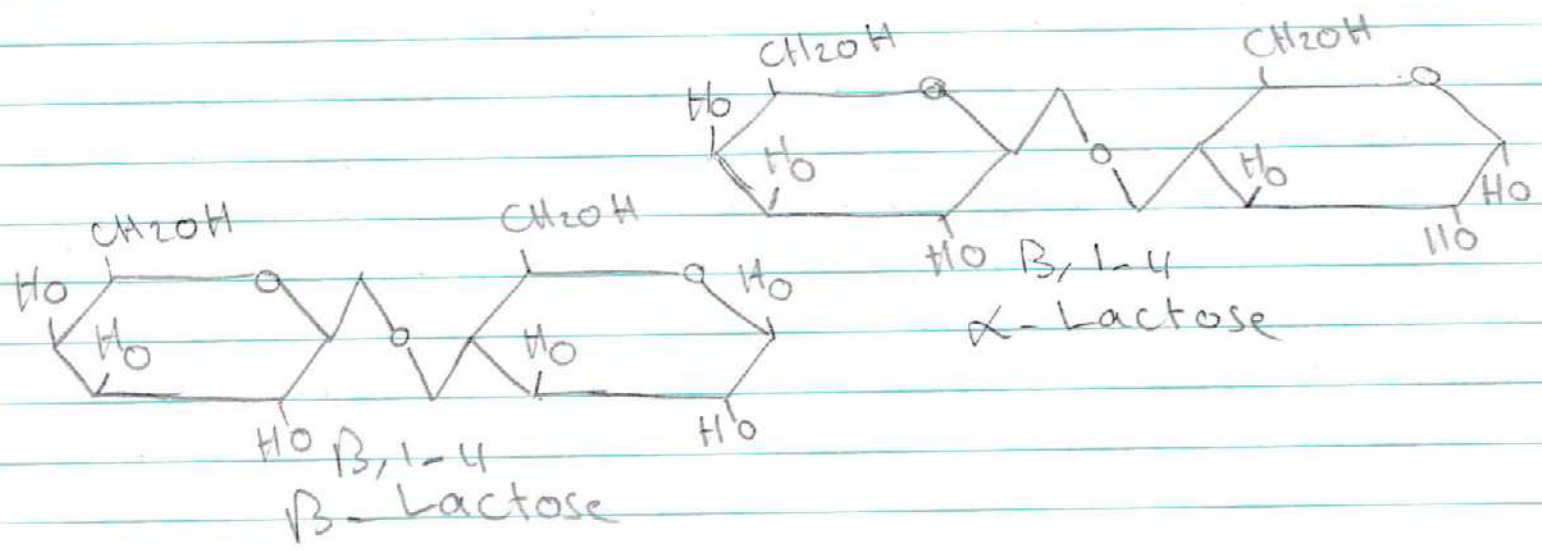 CH2OH CH2OH
HO O O
HO O HO HO
HO HO
β, 1-4
α-Lactose
CH2OH CH2OH
HO O O HO
HO O HO
HO HO
β, 1-4
β-Lactose